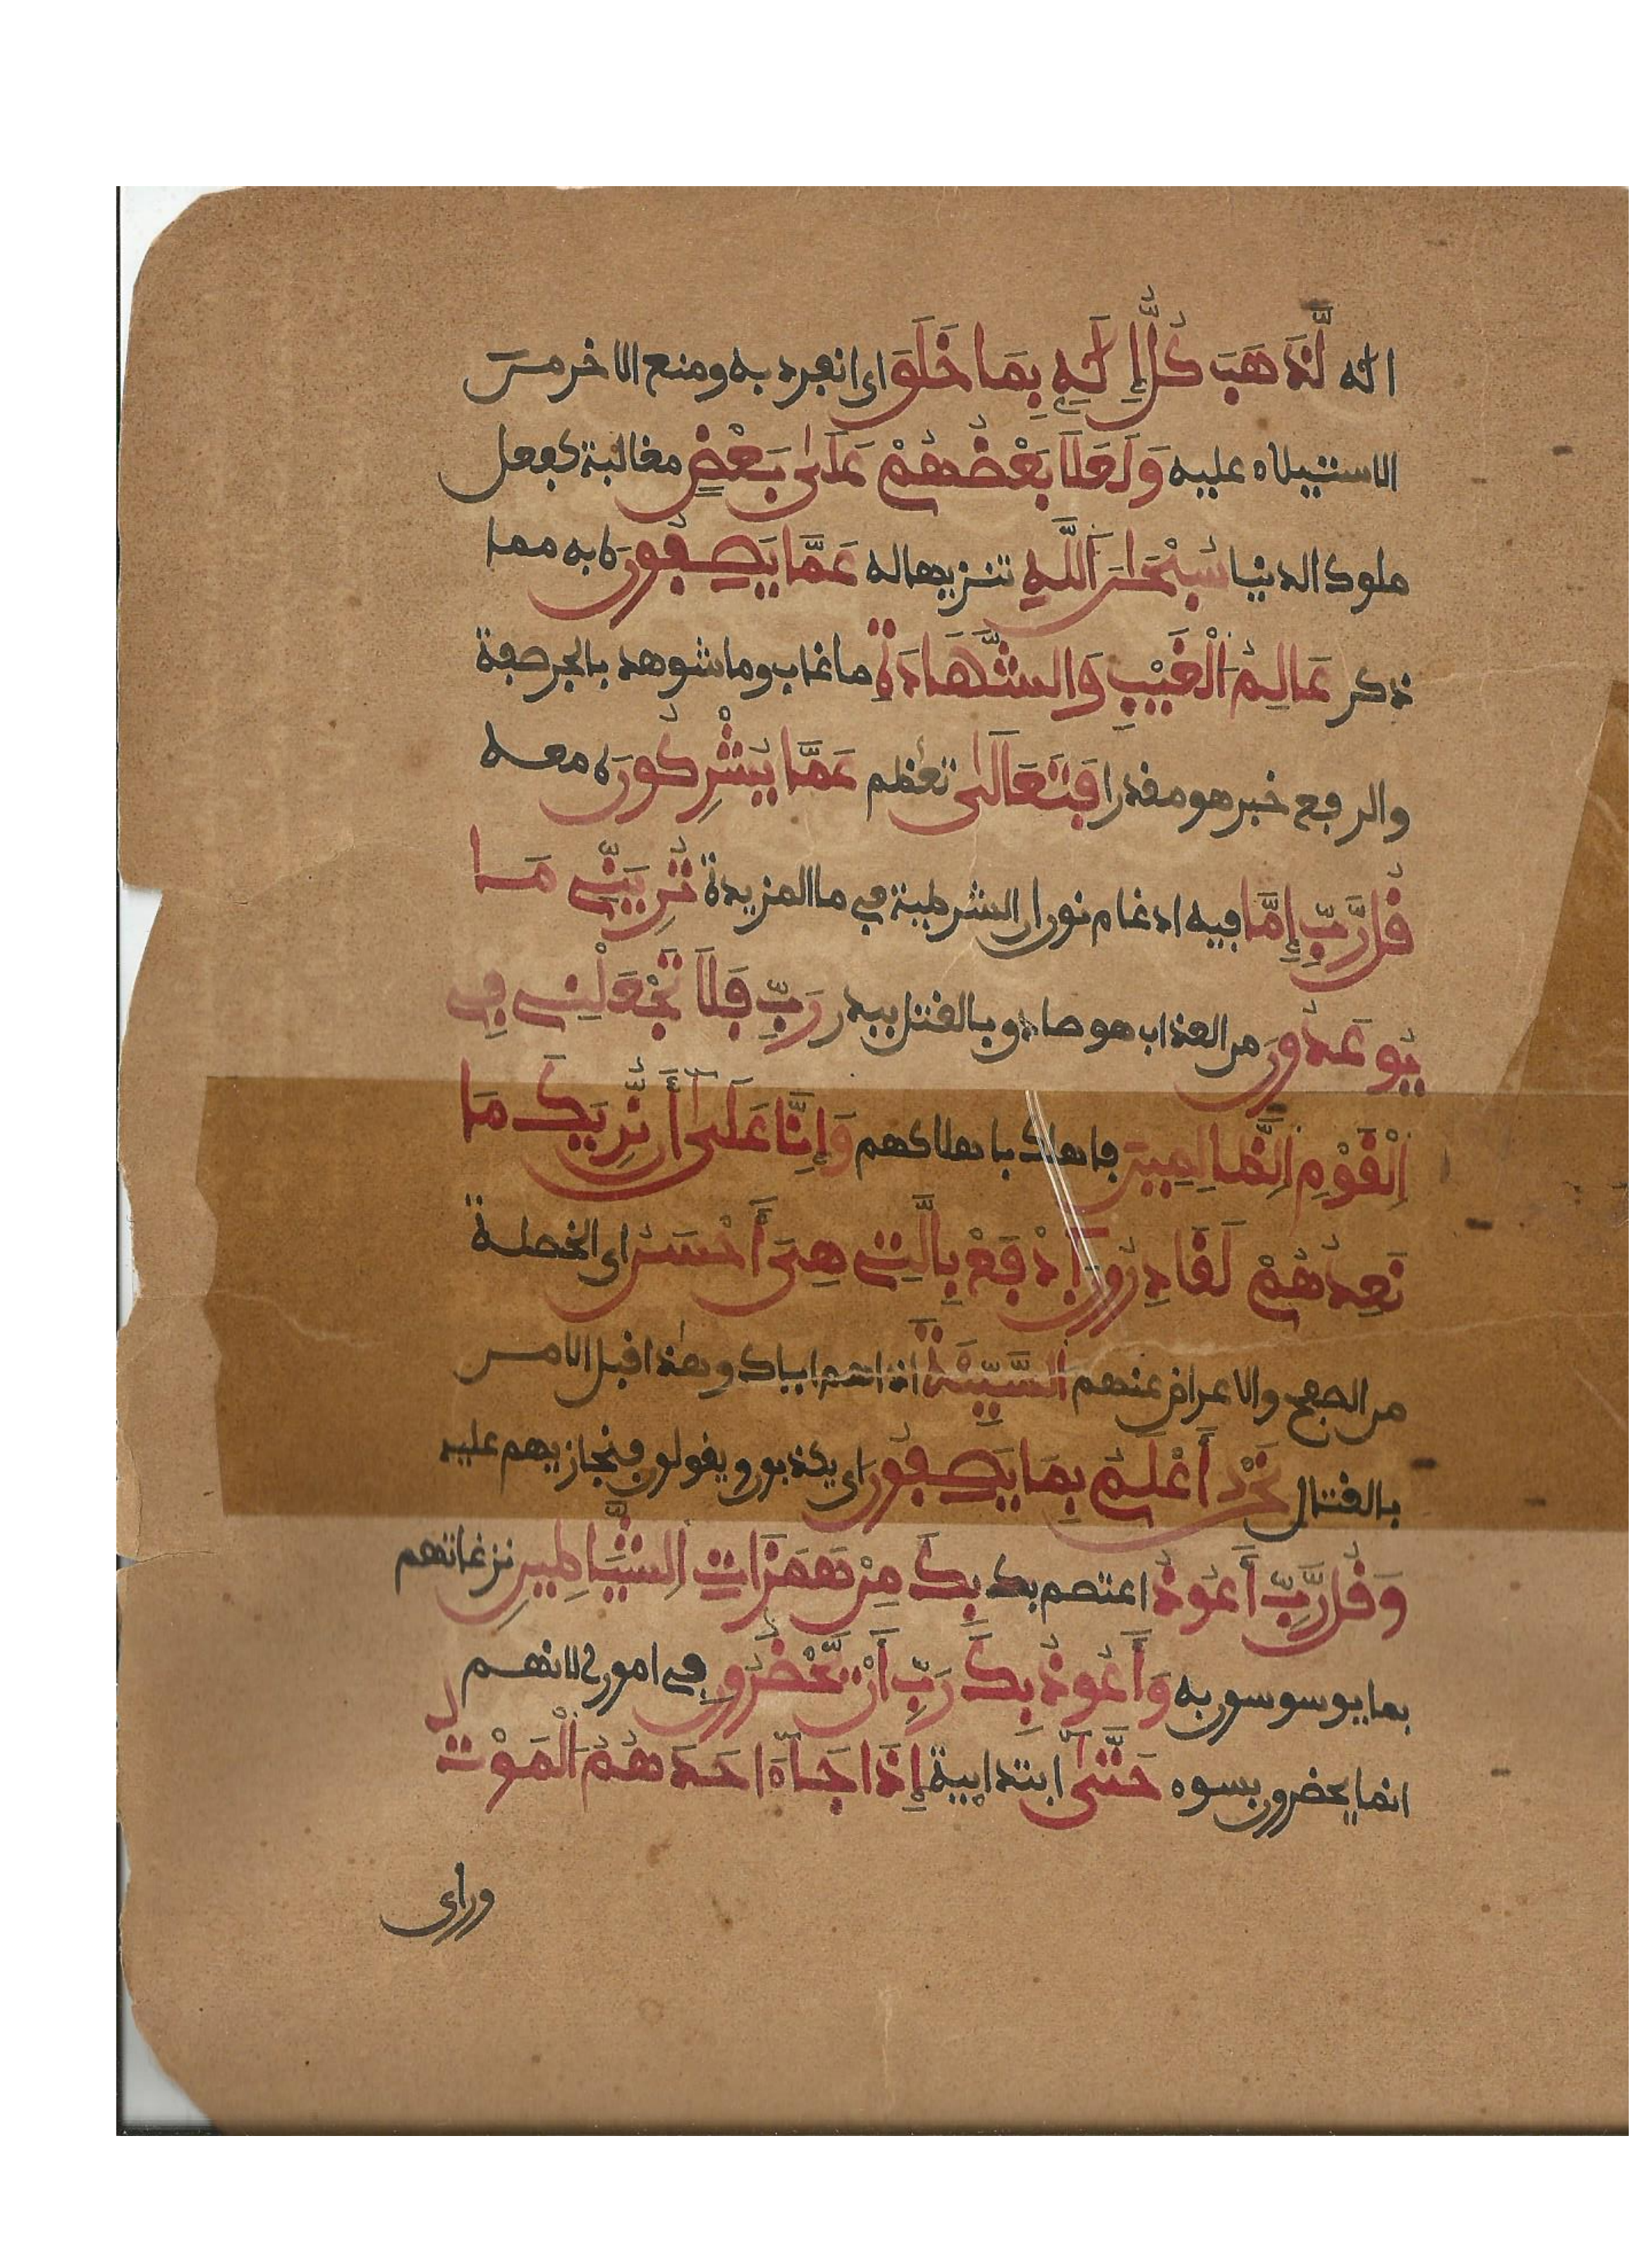 اله لَّذَهَبَ كُلُّ إِلَٰهِۭ بِمَا خَلَقَ اى انفرد به ومنع الاخر من
الاستيلاء عليه وَلَعَلَا بَعْضُهُمْ عَلَىٰ بَعْضٖ مغالبة كفعل
ملوك الدنيا سُبْحَٰنَ اَللَّهِ تنزيها له عَمَّا يَصِفُونَ به مما
ذكر عَالِمُ اُلْغَيْبِ وَالشَّهَادَةِ ما غاب وما شوهد بالجر صفة
والرفع خبر هو مقدرا فَتَعَالَىٰ تعظم عَمَّا يُشْرِكُونَ معه
قُل رَّبِّ إِمَّا فيه ادغام نون ان الشرطية في ما المزيدة تُرِيَنِّي مَا
يُوعَدُونَ من العذاب هو صادق بالقتل ببدر رَبِّ فَلَا تَجْعَلْنِي فِي
اِلْقَوْمِ اِلظَّالِمِينَ فاهلك باهلاكهم وَإِنَّا عَلَىٰ أَن نُّرِيَكَ مَا
نَعِدُهُمْ لَقَادِرُونَ اَدْفَعْ بِالَّتِي هِيَ أَحْسَنُ اى الخصلة
من الصفح والاعراض عنهم اَلسَّيِّئَةَ اذاهم اياك وهذا قبل الامر
بالقتال نَحْنُ أَعْلَمُ بِمَا يَصِفُونَ اى يكذبون ويقولون فنجازيهم عليه
وَقُل رَّبِّ أَعُوذُ اعتصم بك بِكَ مِنْ هَمَزَاتِ اِلشَّيَاطِينِ نزغاتهم
بما يوسوسون به وَأَعُوذُ بِكَ رَبِّ أَنْ يَّحْضُرُونِ في اموري لانهم
انما يحضرون بسوء حَتَّىٰ ابتدايية إِذَا جَاءَ احَدَهُمُ اُلْمَوْتُ
وراى